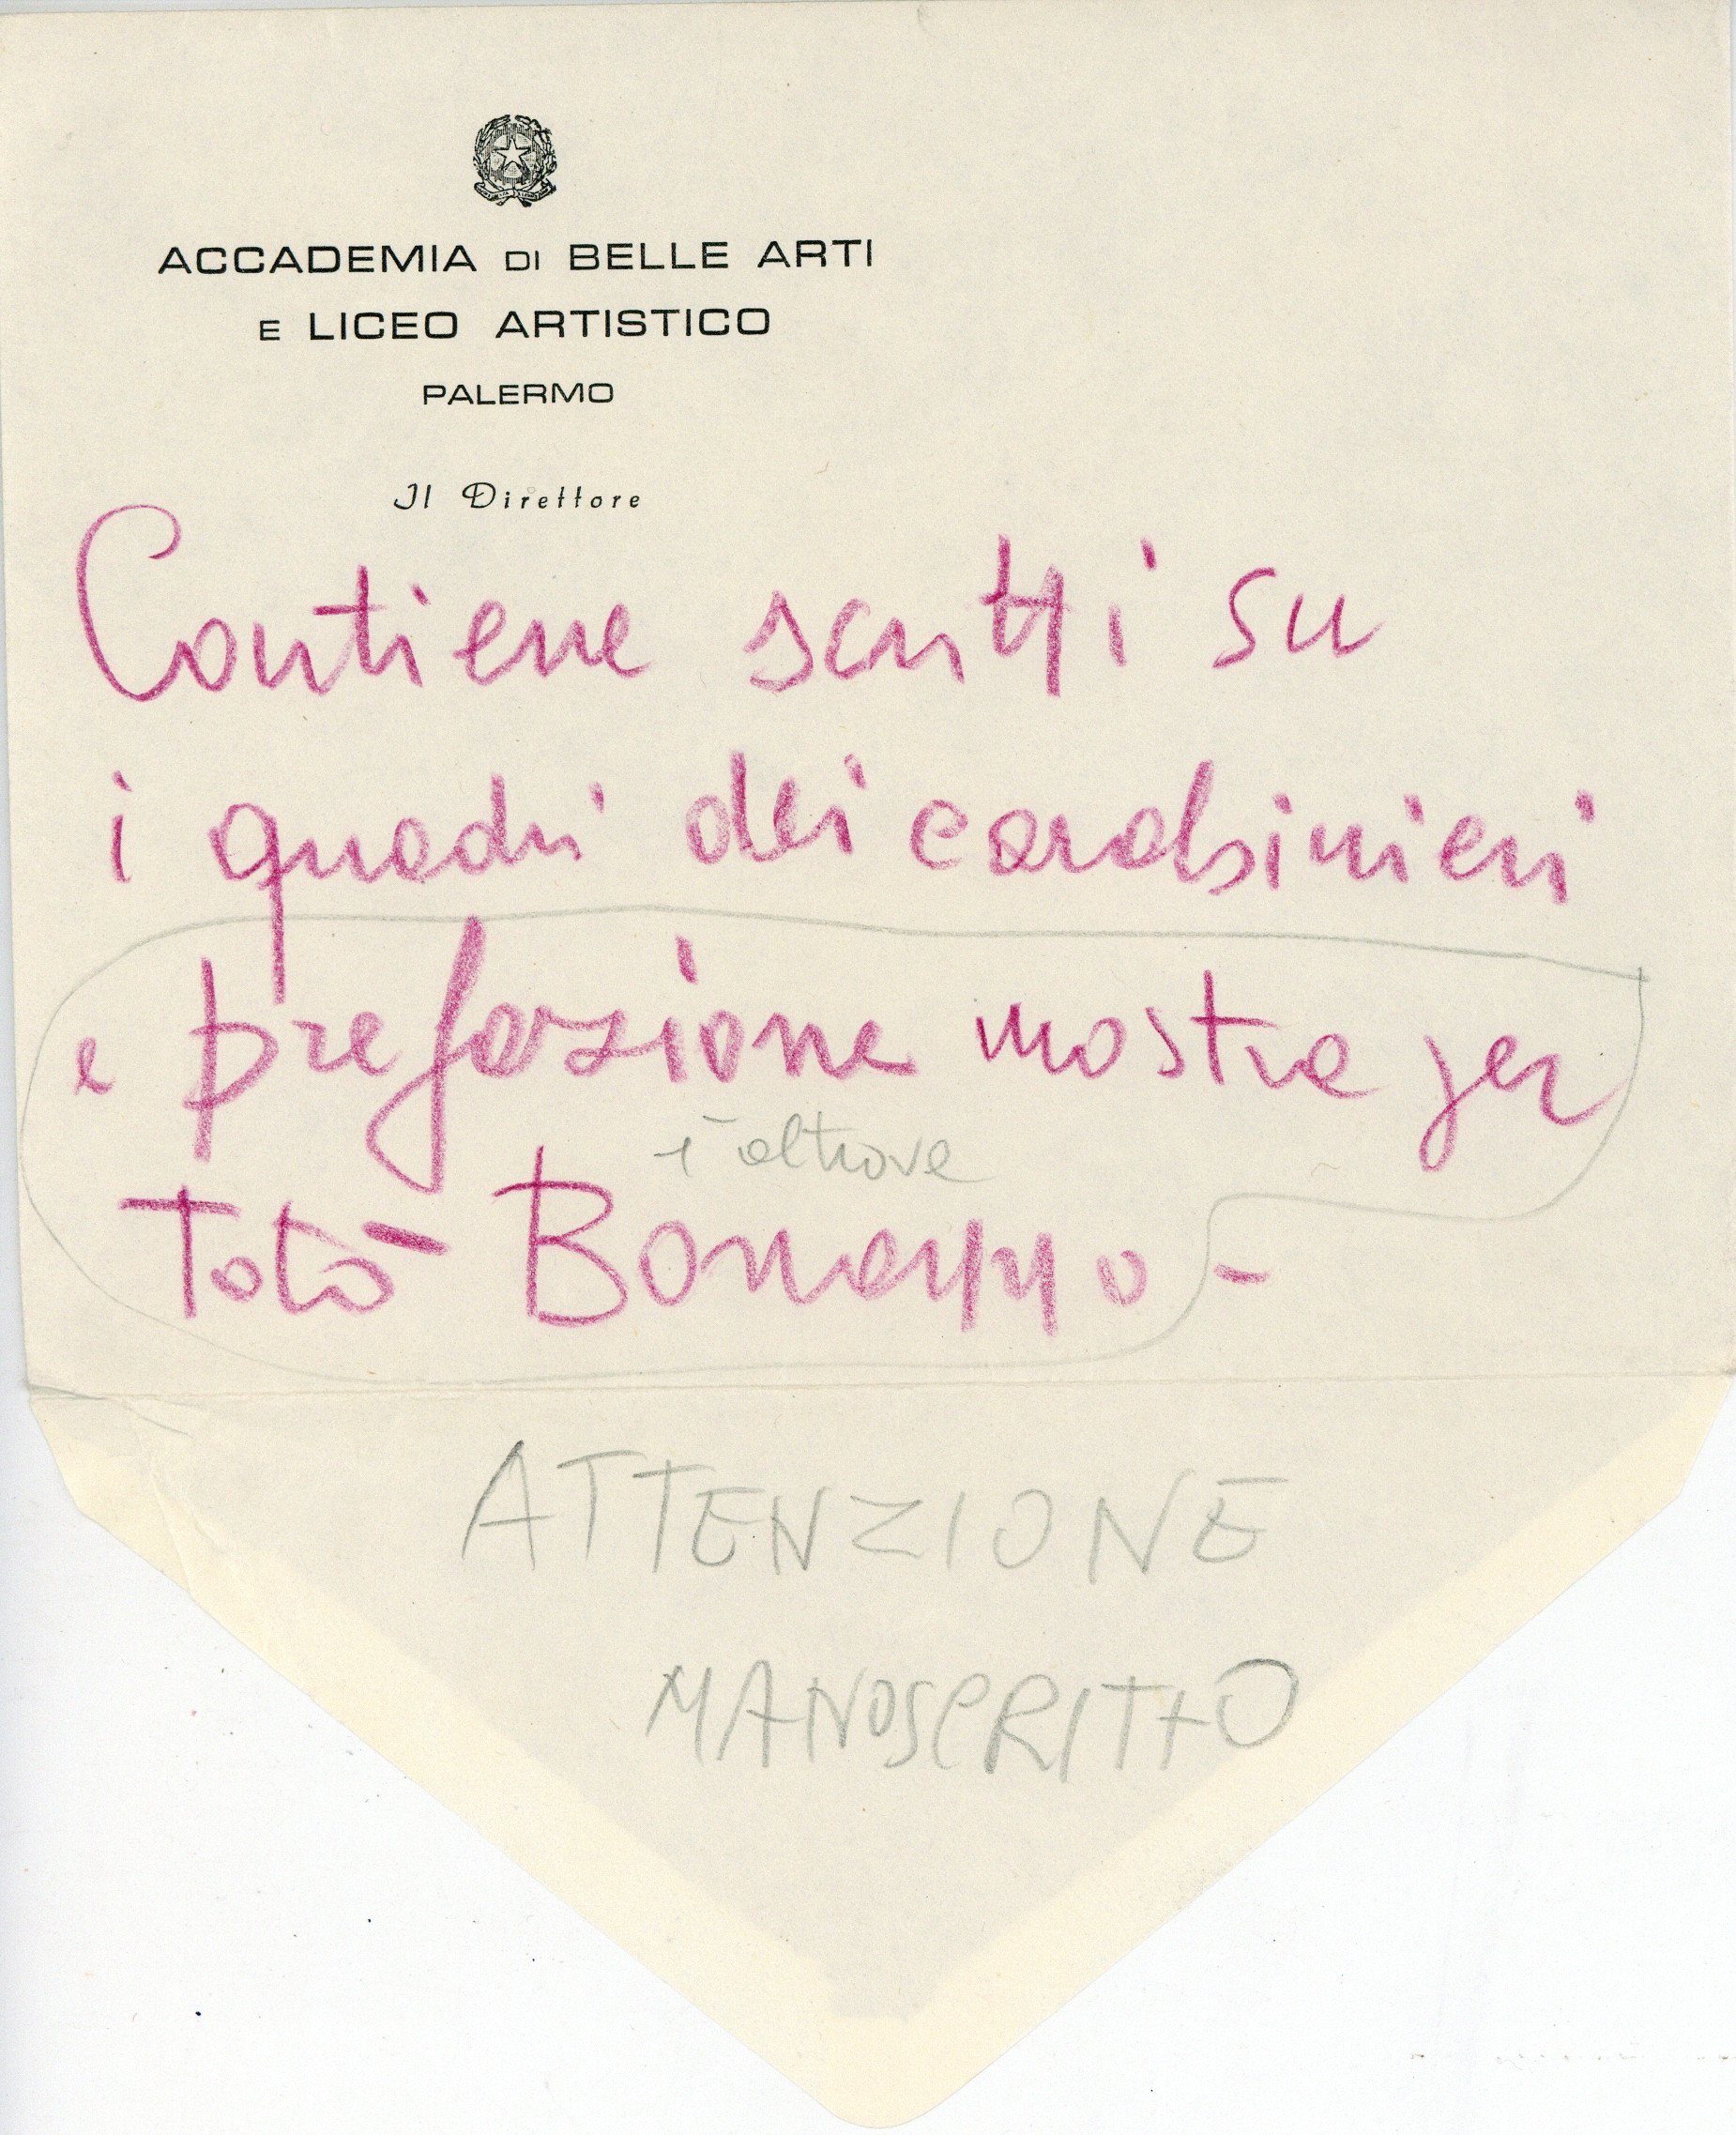 ACCADEMIA DI BELLE ARTI
E LICEO ARTISTICO
PALERMO
Il Direttore
Contiene scritti su
i quadri dei carabinieri
e prefazione mostra per
è altrove
Totò Bonanno -
ATTENZIONE
MANOSCRITTO